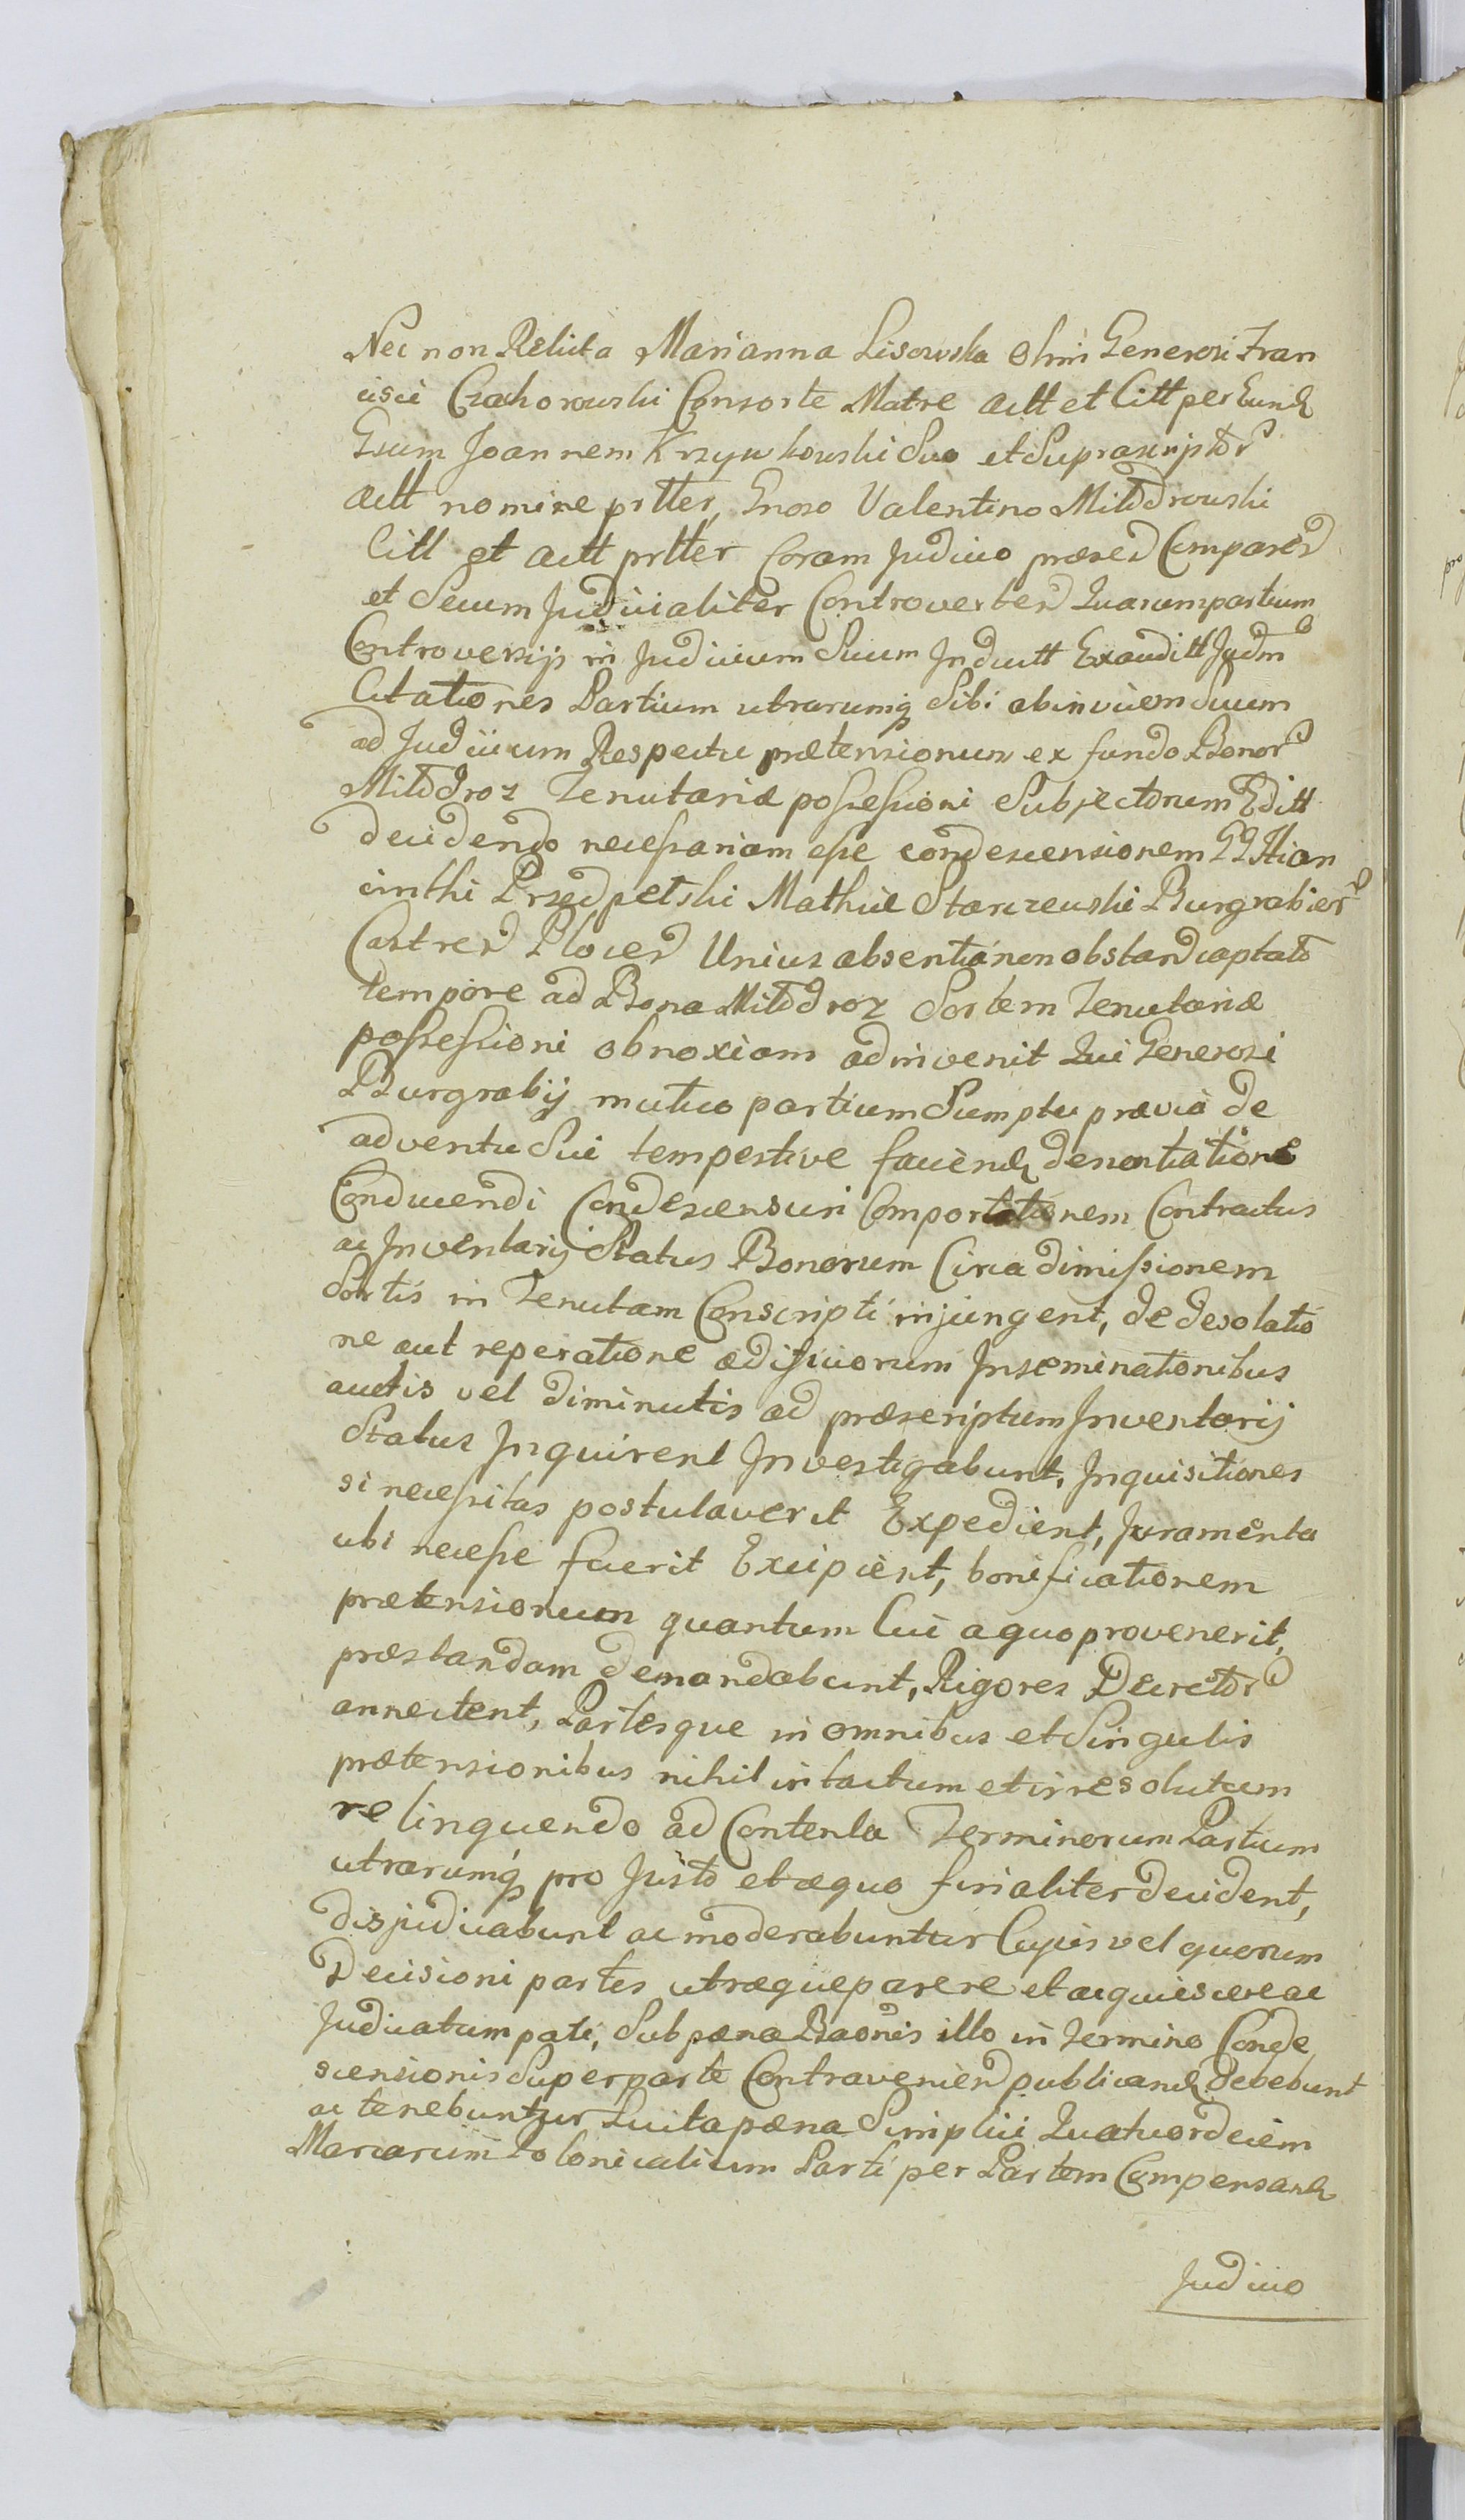 Nec non Relicta Marianna Lisowska Olim Generosi Fran
cisci Czachorowski Consorte Matre Actt et Citt per Eund
Gsum Joannem Krzywkowski Suo et Suprascriptor
Actt nomine prtter, Gnoso Valentino Milodrowski
Citt et Actt prtter Coram Judicio præsen Comparen
et Secum Judicialiter Controverten Quarum partium
Controversijs in Judicium Suum Inductt Exauditt Judm
Citationes Partium utrarumq Sibi abinvicem Suum
ad Judicium Respectu prætensionum ex fundo Bonor
Milodroz Tenutariæ possessioni Subjectorum Editt
decidendo necessariam esse condescensionem GG Hian
cinthi Przedpelski Mathiæ Starczewski Burgrabior
Castren Plocen Unius absentia non obstan captato
tempore ad Bona Milodroz Sortem Tenutariæ
possessioni obnoxiam adinvenit Qui Generosi
Burgrabij mutuo partium Sumptu prævia de
adventu Sui tempestive faciend denontiatione
Conducendi Condescensuri Comportationem Contractus
ac Inventarij Status Bonorum Circa dimissionem
Sortis in Tenutam Conscripti injungent, de desolatio
ne aut reperatione ædificiorum Inseminationibus
auctis vel diminutis ad præscriptum Inventarij
Status Inquirent Investigabunt, Inquisitiones
si necessitas postulaverit Expedient, Juramenta
ubi necesse fuerit Excipient, bonificationem
prætensionum quantum Cui a quo provenerit,
præstandam demandabunt, Rigores Decretor
annectent, Partesque in omnibus et Singulis
prætensionibus nihil intactum et irresolutum
relinquendo ad Contenta Terminorum Partium
utrarumq pro Justo et æquo finaliter decident,
disjudicabunt ac moderabuntur Cujus vel quorum
Decisioni partes utræque parere et acquiescere ac
Judicatum pati, Sub pæna Baonis illo in termino Conde
scensionis Super parte Contravenien publicand debebunt
ac tenebuntur Luita pæna Simplici Quatuordecim
Marcarum Polonicalium Parti per Partem Compensand
Judicio